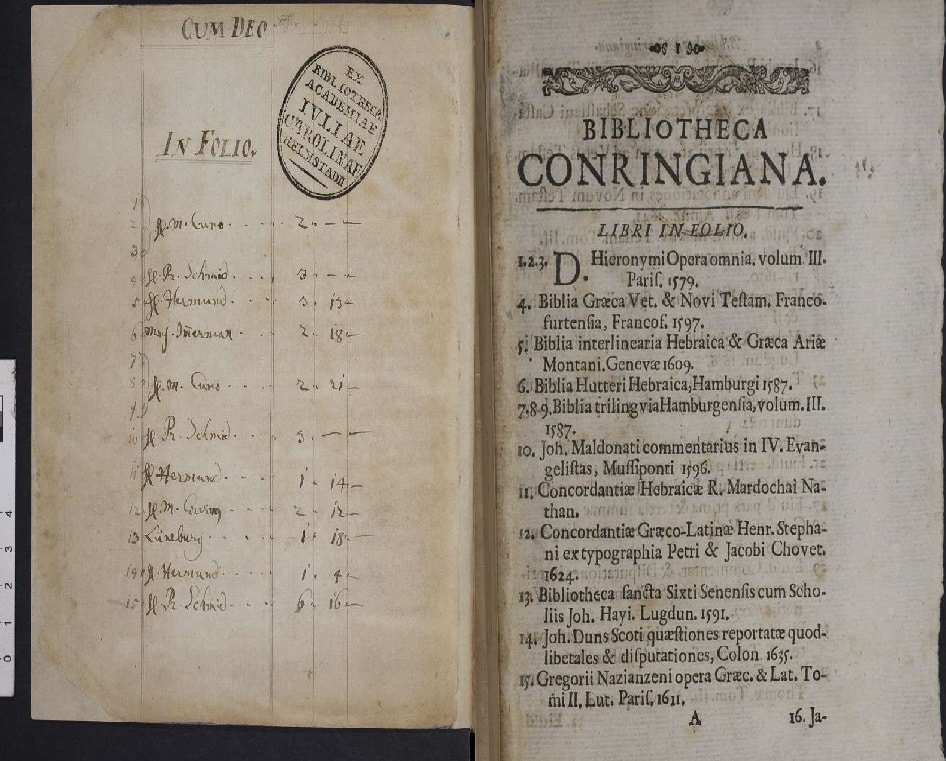 CUM DEO
EX
BIBLIOTHECA
ACADEMIAE
IVLIAE
CAROLINAE
HELMSTADII
IN FOLIO.
1
2 H. M. Cuno. 2. — —
3
4 H. R. Schmid. 3. — —
5 H. Hermund. 3. 13 —
6 2. 18 —
7
8 H. M. Cuno. 2. 21 —
9
10 H. R. Schmid. 3. — —
11 H. Hermund. 1. 14 —
12 H. M. 2. 12 —
13 Lüneburg. 1. 18 —
14 H. Hermund. 1. 4 —
15 H. R. Schmid. 6. 16 —
1
BIBLIOTHECA
CONRINGIANA.
LIBRI IN FOLIO.
1.2.3. D. Hieronymi Opera omnia, volum III.
Pariſ. 1579.
4. Biblia Græca Vet. & Novi Teſtam. Franco-
furtenſia, Francof. 1597.
5. Biblia interlinearia Hebraica & Græca Ariæ
Montani. Genevæ 1609.
6. Biblia Hutteri Hebraica, Hamburgi 1587.
7.8.9. Biblia trilingvia Hamburgenſia, volum. III.
1587.
10. Joh. Maldonati commentarius in IV. Evan-
geliſtas, Muſſiponti 1596.
11. Concordantiæ Hebraicæ R. Mardochai Na-
than.
12. Concordantiæ Græco-Latinæ Henr. Stepha-
ni ex typographia Petri & Jacobi Chovet.
1624.
13. Bibliotheca ſancta Sixti Senenſis cum Scho-
liis Joh. Hayi. Lugdun. 1591.
14. Joh. Duns Scoti quæſtiones reportatæ quod-
libetales & diſputationes, Colon 1635.
15. Gregorii Nazianzeni opera Græc. & Lat. To-
mi II. Lut. Pariſ. 1611.
A 16. Ja-